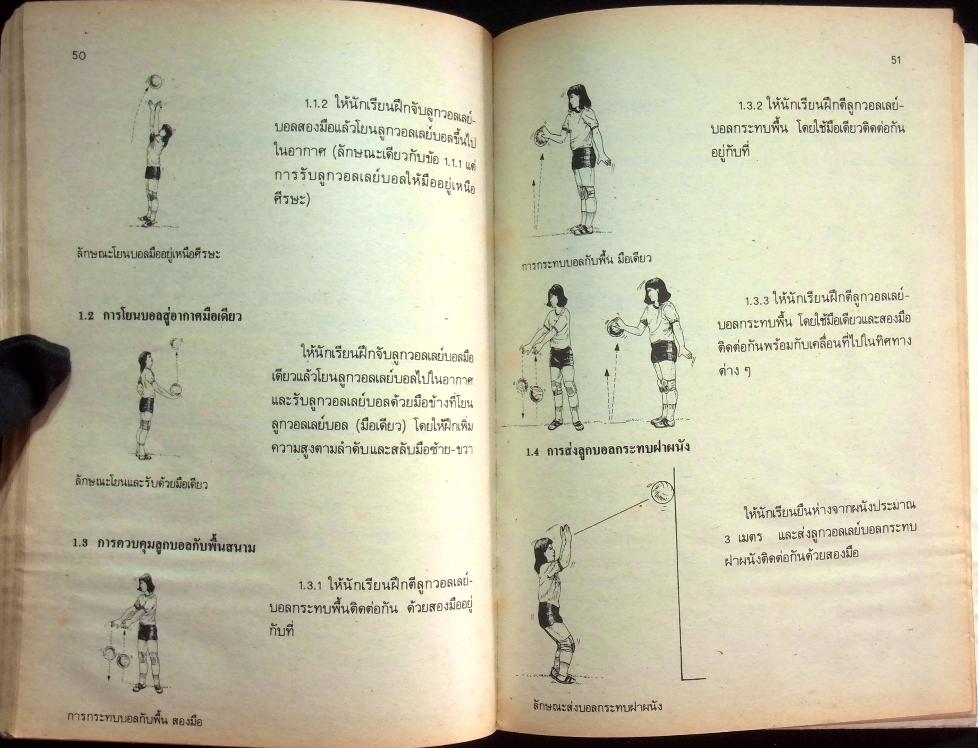 50
1.1.2 ให้นักเรียนฝึกจับลูกวอลเลย์-
บอลสองมือแล้วโยนลูกวอลเลย์บอลขึ้นไป
ในอากาศ (ลักษณะเดียวกับข้อ 1.1.1 แต่
การรับลูกวอลเลย์บอลให้มืออยู่เหนือ
ศีรษะ)
ลักษณะโยนบอลมืออยู่เหนือศีรษะ
1.2 การโยนบอลสู่อากาศมือเดียว
ให้นักเรียนฝึกจับลูกวอลเลย์บอลมือ
เดียวแล้วโยนลูกวอลเลย์บอลไปในอากาศ
และรับลูกวอลเลย์บอลด้วยมือข้างที่โยน
ลูกวอลเลย์บอล (มือเดียว) โดยให้ฝึกเพิ่ม
ความสูงตามลำดับและสลับมือซ้าย-ขวา
ลักษณะโยนและรับด้วยมือเดียว
1.3 การควบคุมลูกบอลกับพื้นสนาม
1.3.1 ให้นักเรียนฝึกตีลูกวอลเลย์-
บอลกระทบพื้นติดต่อกัน ด้วยสองมืออยู่
กับที่
การกระทบบอลกับพื้น สองมือ
51
1.3.2 ให้นักเรียนฝึกตีลูกวอลเลย์-
บอลกระทบพื้น โดยใช้มือเดียวติดต่อกัน
อยู่กับที่
การกระทบบอลกับพื้น มือเดียว
1.3.3 ให้นักเรียนฝึกตีลูกวอลเลย์-
บอลกระทบพื้น โดยใช้มือเดียวและสองมือ
ติดต่อกันพร้อมกับเคลื่อนที่ไปในทิศทาง
ต่าง ๆ
1.4 การส่งลูกบอลกระทบฝาผนัง
ให้นักเรียนยืนห่างจากผนังประมาณ
3 เมตร และส่งลูกวอลเลย์บอลกระทบ
ฝาผนังติดต่อกันด้วยสองมือ
ลักษณะส่งบอลกระทบฝาผนัง